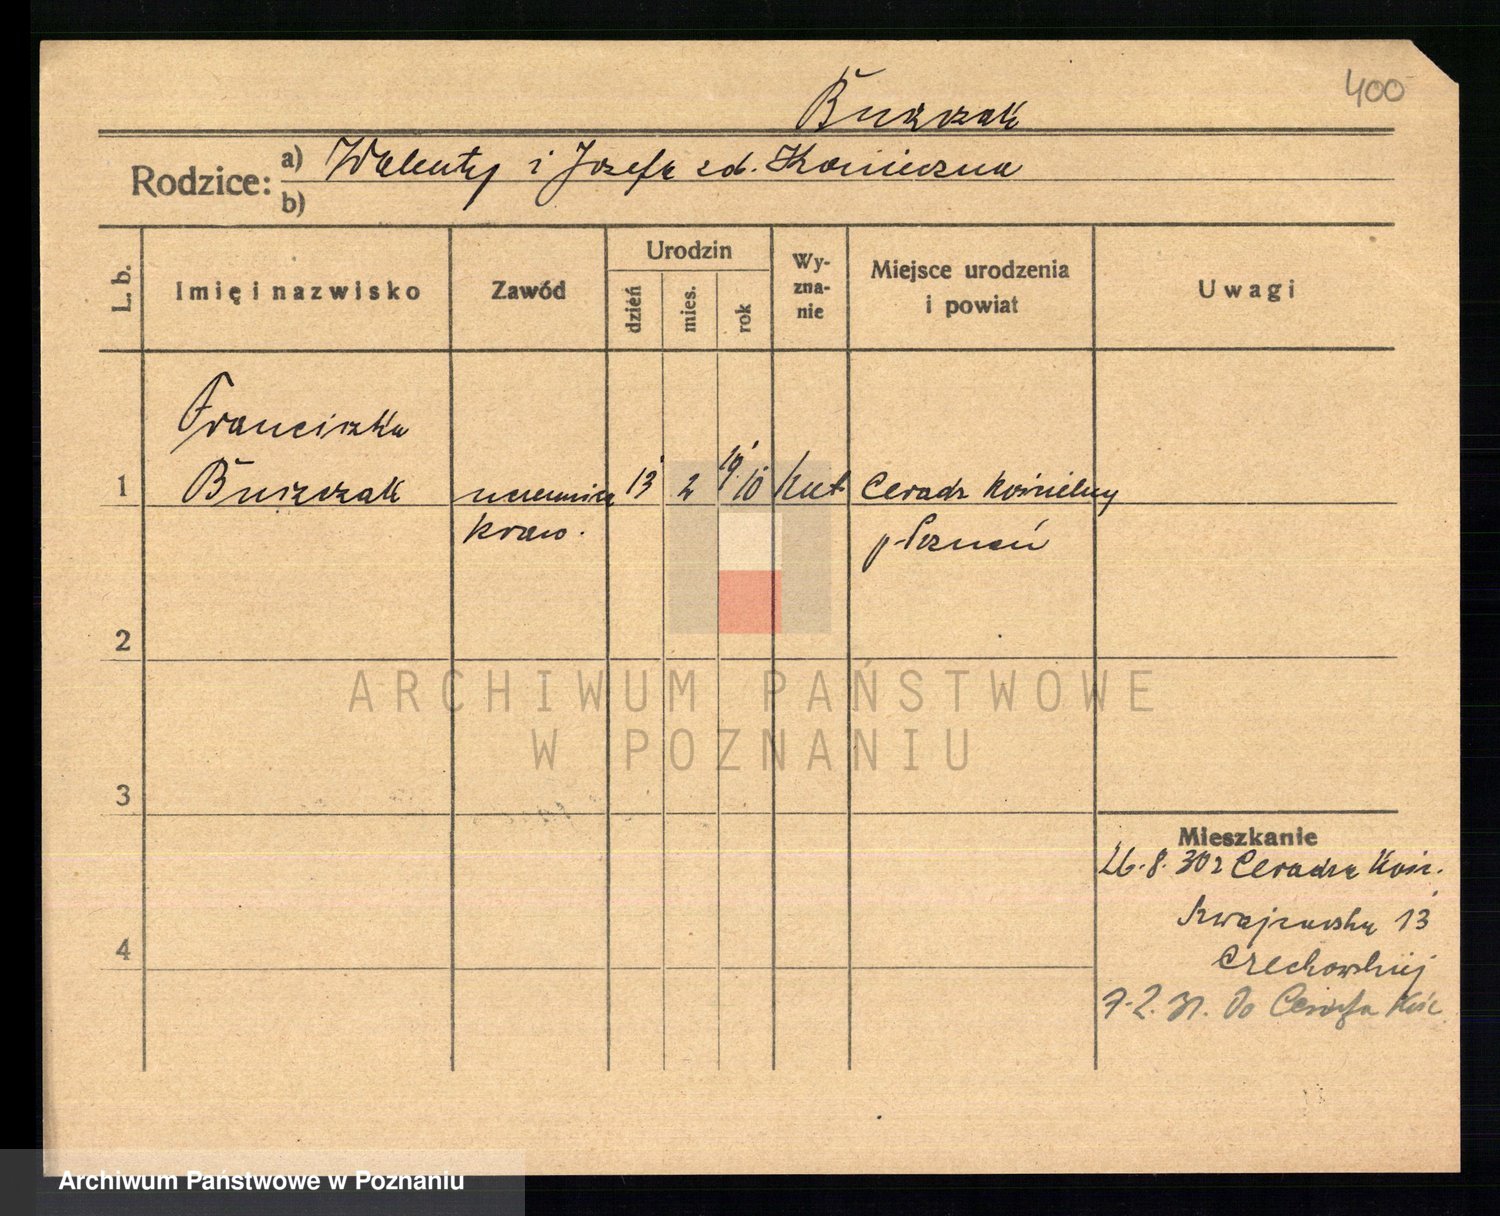 400
Buszczak
Rodzice: a) Walenty i Józefa zd. Konieczna
b)
L. b.
Imię i nazwisko
Zawód
Urodzin
dzień
mies.
rok
Wy-
zna-
nie
Miejsce urodzenia
i powiat
Uwagi
Franciszka
1 Buszczak uczennica 13 2 19 10 kat Ceradz Kościelny
kraw. p. Poznań
2
3
4
Mieszkanie
26.8.30 z Ceradza Kośc.
13
Czechowskiej
7.2.31. Do Ceradza Kośc
ARCHIWUM PAŃSTWOWE
W POZNANIU
Archiwum Państwowe w Poznaniu